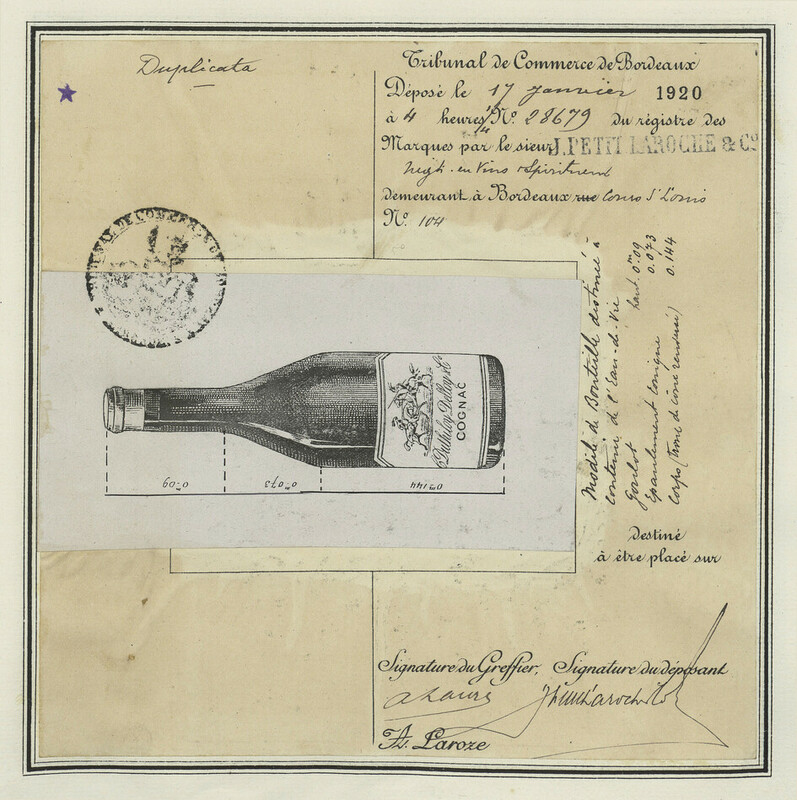 Duplicata
Tribunal de Commerce de Bordeaux
Déposé le 17 janvier 1920
à 4 heures 1/4 N° 28679 du régistre des
Marques par le sieur J. PETIT LAROCHE & Co
négt. en Vins & Spiritueux
demeurant à Bordeaux rue Cours St Louis
N° 104
TRIBUNAL DE COMMERCE DE
Modèle de Bouteille destinée à
contenir de l'Eau-de-Vie
Goulot haut. 0m.09
Epaulement conique 0.073
Corps (tronc de cône renversé) 0.144
COGNAC
0m09
0m073
0m144
destiné
à être placé sur
Signature du Greffier, Signature du déposant
A. Laroze